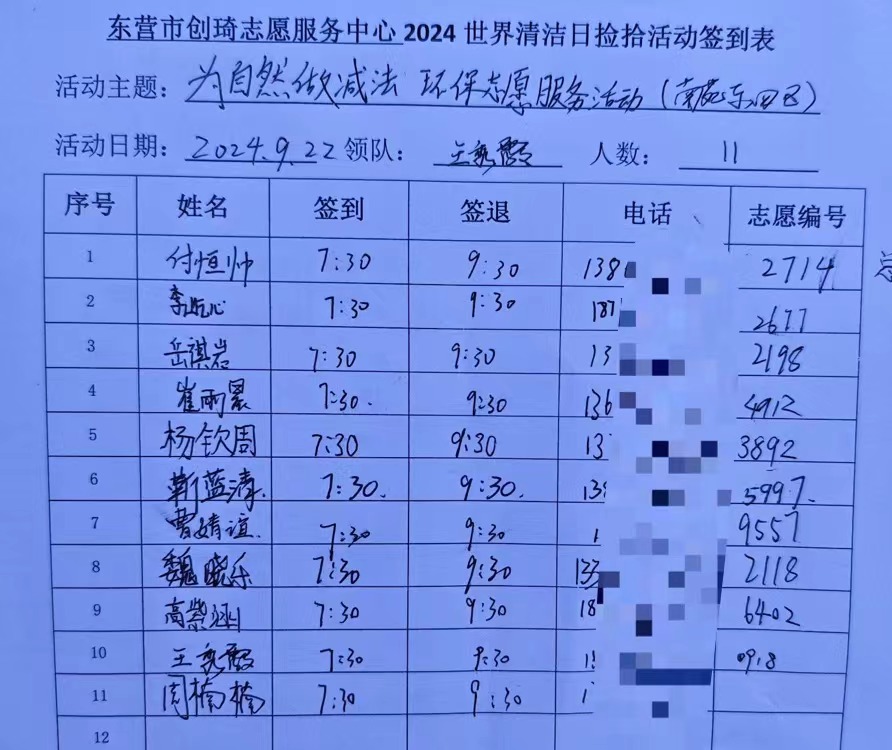 东营市创琦志愿服务中心2024世界清洁日捡拾活动签到表
活动主题: 为自然做减法 环保志愿服务活动(南苑东四区)
活动日期: 2024.9.22 领队: 王秀霞 人数: 11
序号 姓名 签到 签退 电话 志愿编号
1 付恒帅 7:30 9:30 138 2714
2 李 心 7:30 9:30 187 2677
3 岳祺岩 7:30 9:30 13 2198
4 崔雨晨 7:30. 9:30 136 4912
5 杨钦周 7:30 9:30 13 3892
6 靳蓝清. 7:30. 9:30. 13 5997.
7 曹婧谊. 7:30 9:30 1 9557
8 魏晓乐 7:30 9:30 133 2118
9 高紫涵 7:30 9:30 18 6402
10 王秀霞 7:30 9:30 1 0918
11 周楠楠 7:30 9:30 1
12